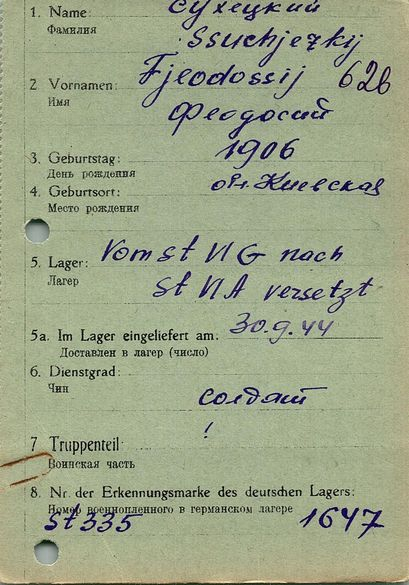 1. Name: Сухецкий
Фамилия Ssuchjezkij
2 Vornamen: Fjeodossij 626
Имя Феодосий
3. Geburtstag: 1906
День рождения
4. Geburtsort: обл. Киевская
Место рождения
5. Lager: Vom st VI G nach
Лагер st VI A versetzt
5a. Im Lager eingeliefert am: 30.9.44
Доставлен в лагер (число)
6. Dienstgrad:
Чин солдат
!
7 Truppenteil
Воинская часть
8. Nr. der Erkennungsmarke des deutschen Lagers:
Номер военнопленного в германском лагере
St 335 1647